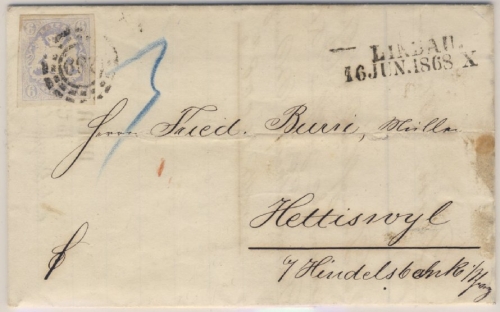 LINDAU.
16 JUN. 1868 X
Herrn Fried. Burri, Müller
Hettiswyl
Hindelsbank